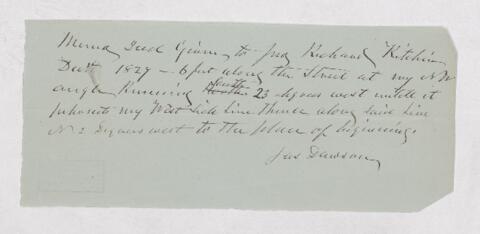 Memo Deed Given to Jno Richard Kitchin
Decr 1827 – 6 feet along the Street at my N W
angle Running South 23 degrees west untill it
my West side line thence along said line
N 2 degrees west to the place of beginning.
Jas Dawson